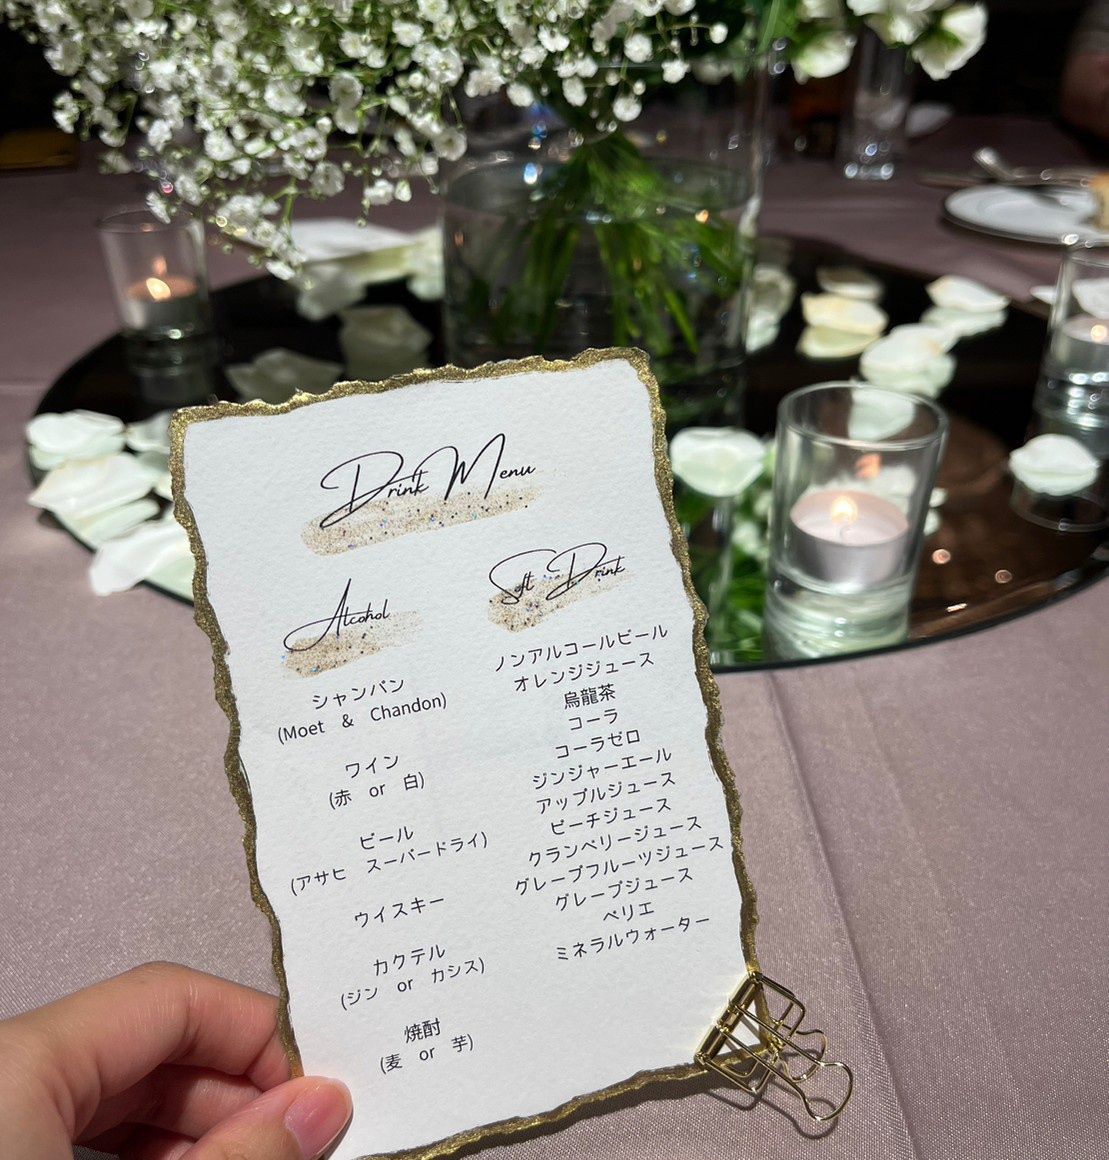 Drink Menu
Alcohol
シャンパン
(Moet & Chandon)
ワイン
(赤 or 白)
ビール
(アサヒ スーパードライ)
ウイスキー
カクテル
(ジン or カシス)
焼酎
(麦 or 芋)
Soft Drink
ノンアルコールビール
オレンジジュース
烏龍茶
コーラ
コーラゼロ
ジンジャーエール
アップルジュース
ピーチジュース
クランベリージュース
グレープフルーツジュース
グレープジュース
ペリエ
ミネラルウォーター